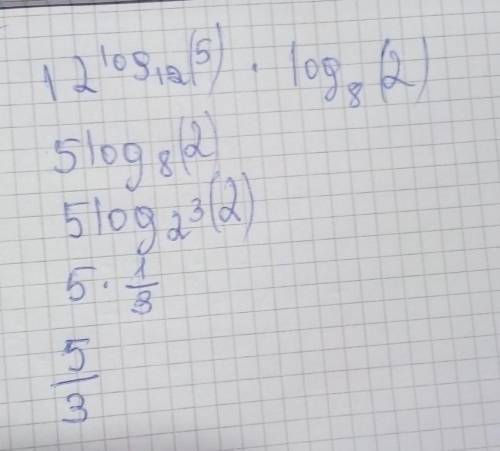 12^log₁₂(5) · log₈(2)
5log₈(2)
5log₂³(2)
5 · 1/3
5/3